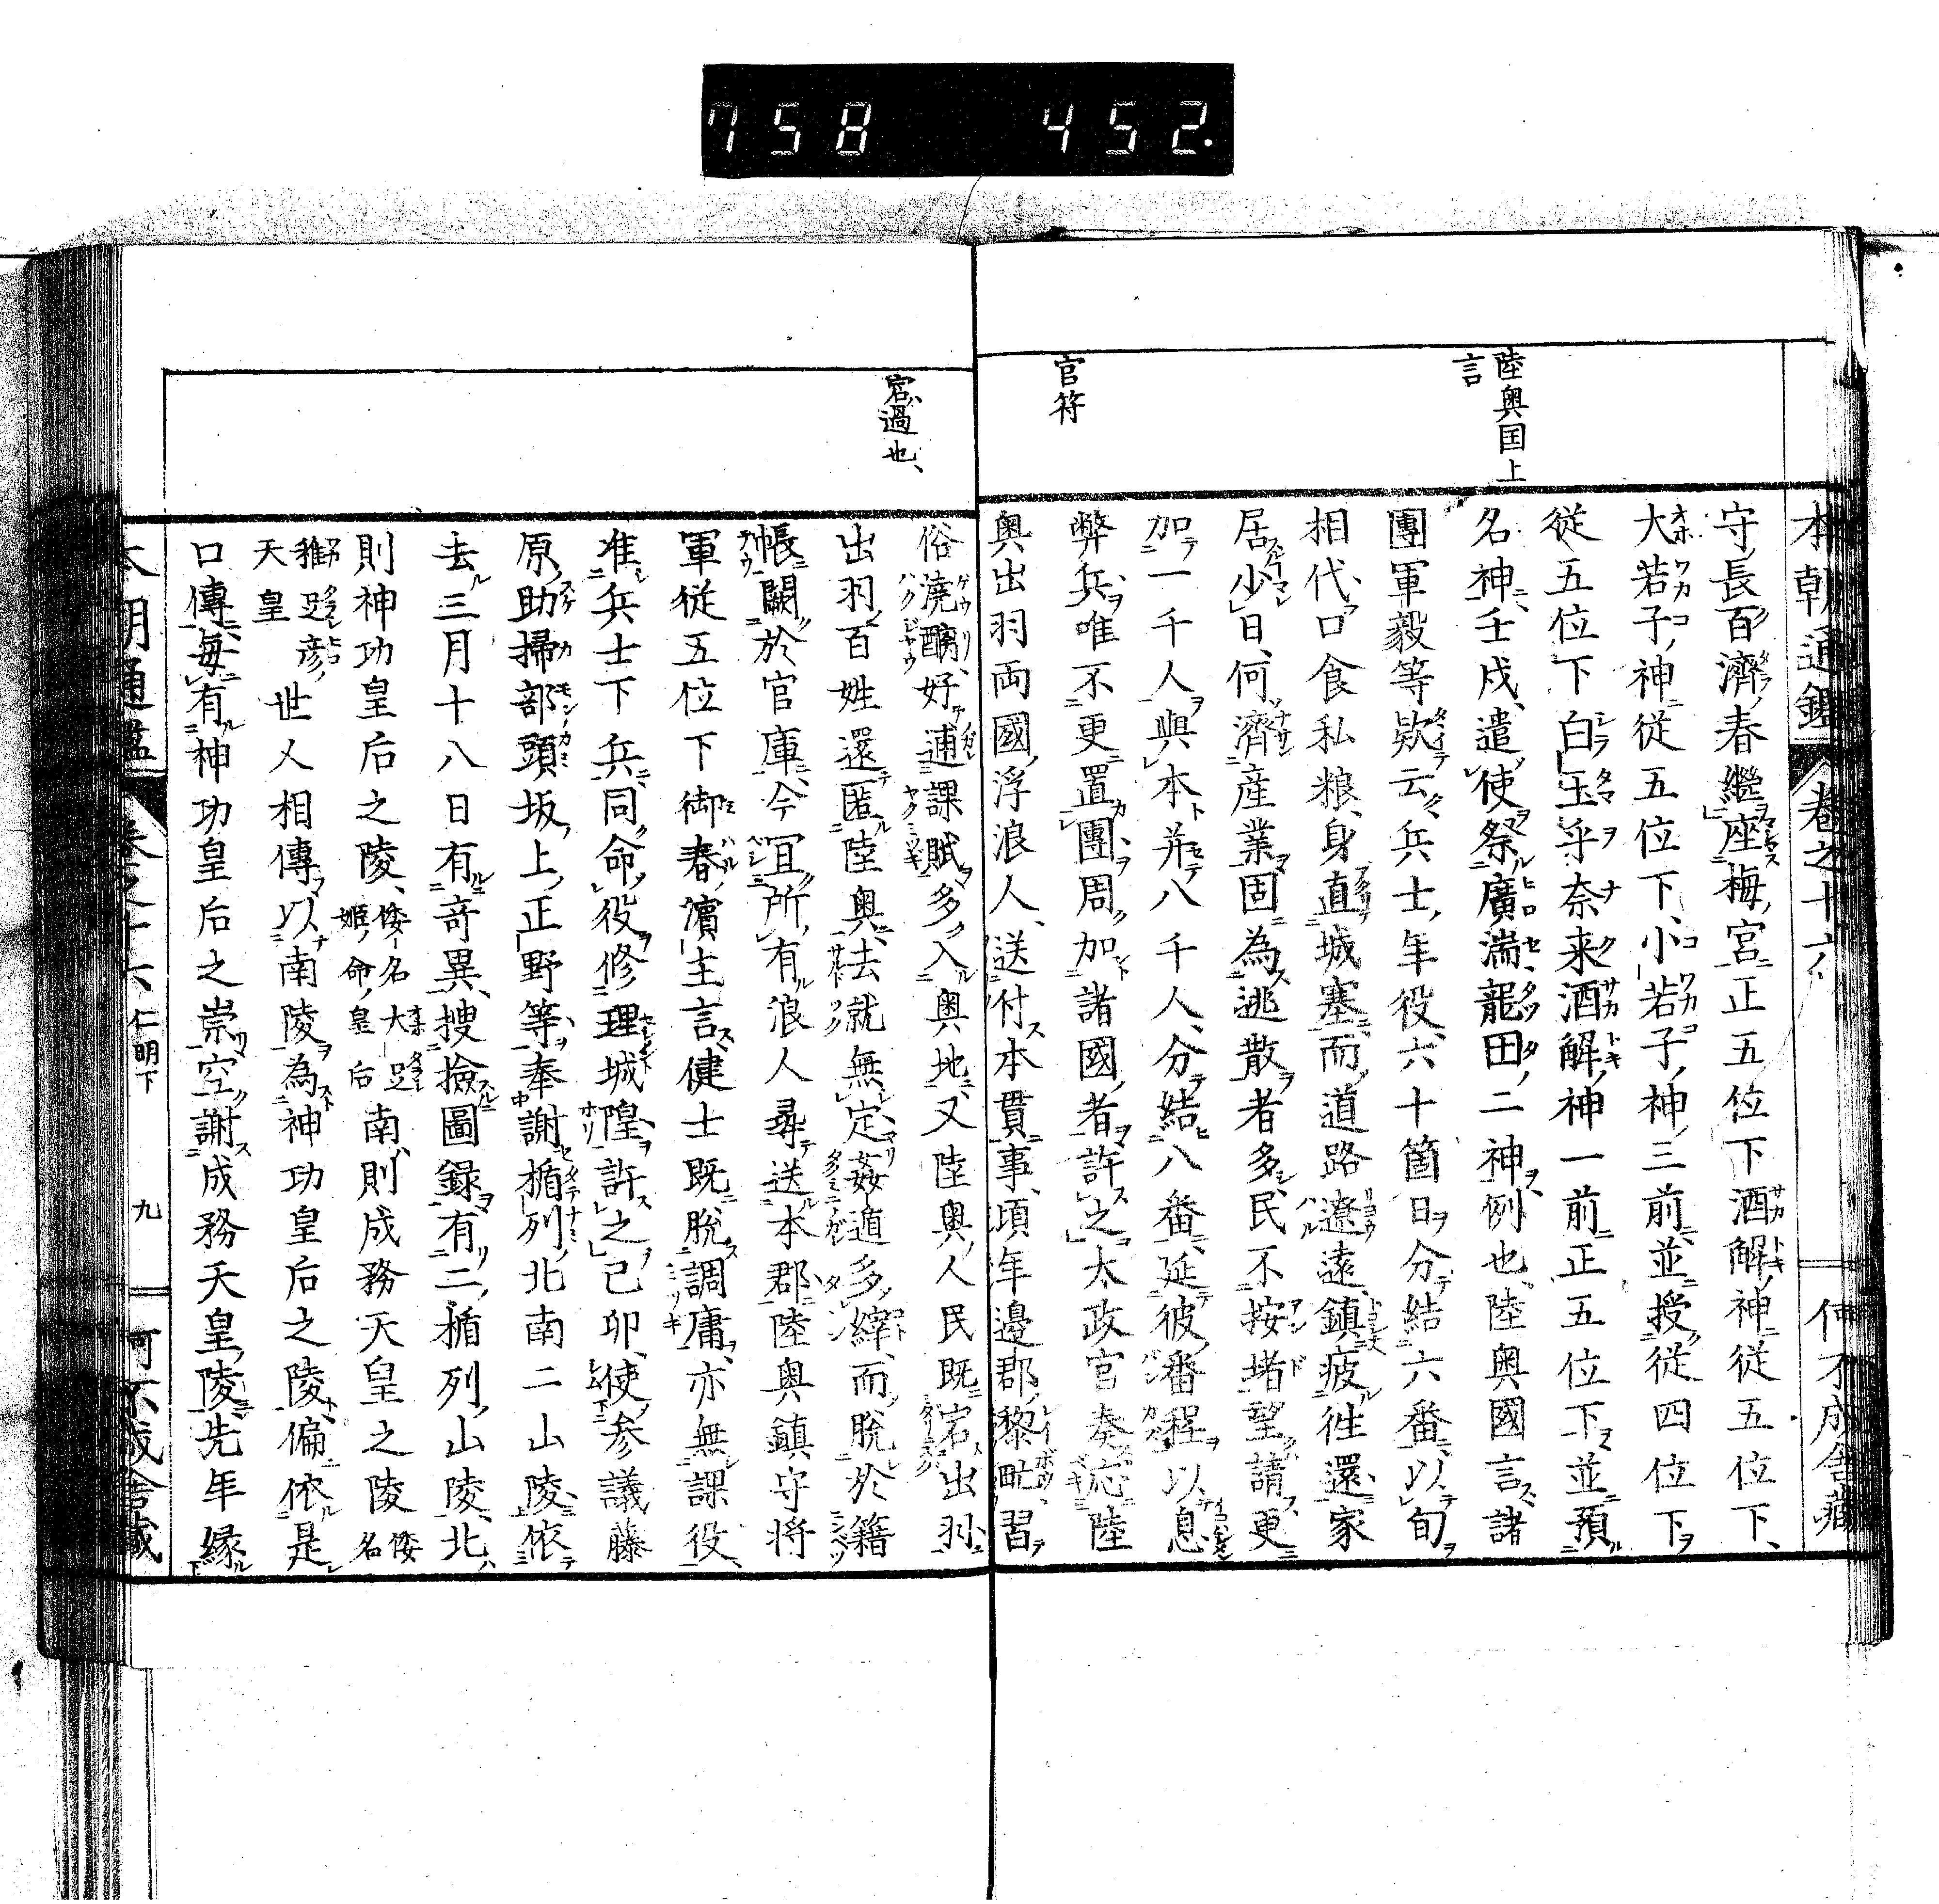 758 452.
本朝通鑑 卷之十六 何不成舍藏
陸奥国上
言
官符
守長百濟春繼座梅宮正五位下酒解神従五位下
大若子神従五位下小若子神三前並授従四位下
従五位下白玉乎奈来酒解神一前正五位下並預
名神壬戌遣使祭廣湍龍田二神例也陸奥國言諸
團軍毅等欵云兵士年役六十箇日分結六番以旬
相代口食私粮身直城塞而道路遼遠鎮疲往還家
居少日何濟産業固為逃散者多民不按堵望請更
加一千人與本并八千人分結八番延彼番程以息
弊兵唯不更置團周加諸國者許之太政官奏応陸
奥出羽両國浮浪人送付本貫事頃年邊郡黎甿習
宕過也
俗澆醨好逋課賦多入奥地又陸奥人民既宕出羽
出羽百姓還匿陸奥去就無定姦遁多繹而脱於籍
帳闕於官庫今宜所有浪人尋送本郡陸奥鎮守将
軍従五位下御春濱主言健士既脱調庸亦無課役
准兵士下兵同命役修理城隍許之己卯使参議藤
原助掃部頭坂上正野等奉謝楯列北南二山陵依
去三月十八日有竒異搜撿圖録有二楯列山陵北
則神功皇后之陵倭名大足姫命皇后南則成務天皇之陵倭名
稚足彦天皇世人相傳以南陵為神功皇后之陵偏依是
口傳毎有神功皇后之崇空謝成務天皇陵先年縁
仁明下 九